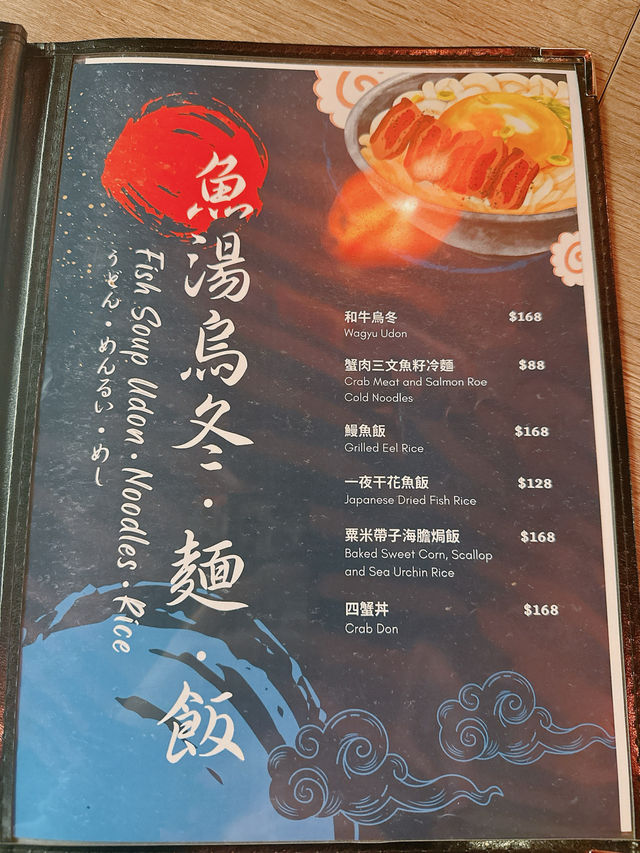 魚湯烏冬·麵·飯
Fish Soup Udon·Noodles·Rice
うぜん·めんるい·めし
和牛烏冬 $168
Wagyu Udon
蟹肉三文魚籽冷麵 $88
Crab Meat and Salmon Roe
Cold Noodles
鰻魚飯 $168
Grilled Eel Rice
一夜干花魚飯 $128
Japanese Dried Fish Rice
粟米帶子海膽焗飯 $168
Baked Sweet Corn, Scallop
and Sea Urchin Rice
四蟹丼 $168
Crab Don